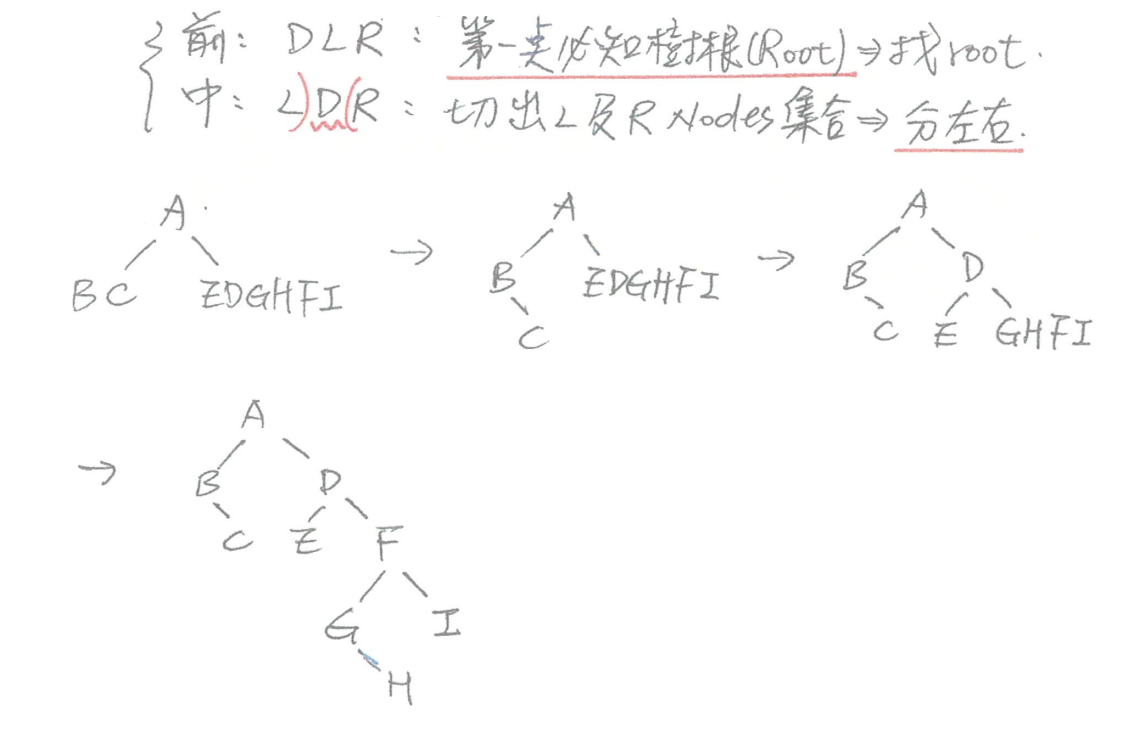 前: DLR : 第一点必知樹根(Root)⇒找root.
中: L)D(R : 切出L及R Nodes集合⇒分左右.
A → A → A
B D
BC EDGHFI B EDGHFI C E GHFI
C
→ A
B D
C E F
G I
H